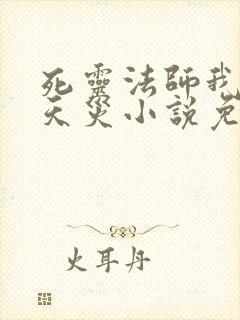 死靈法師我
天災小說免
火耳丹